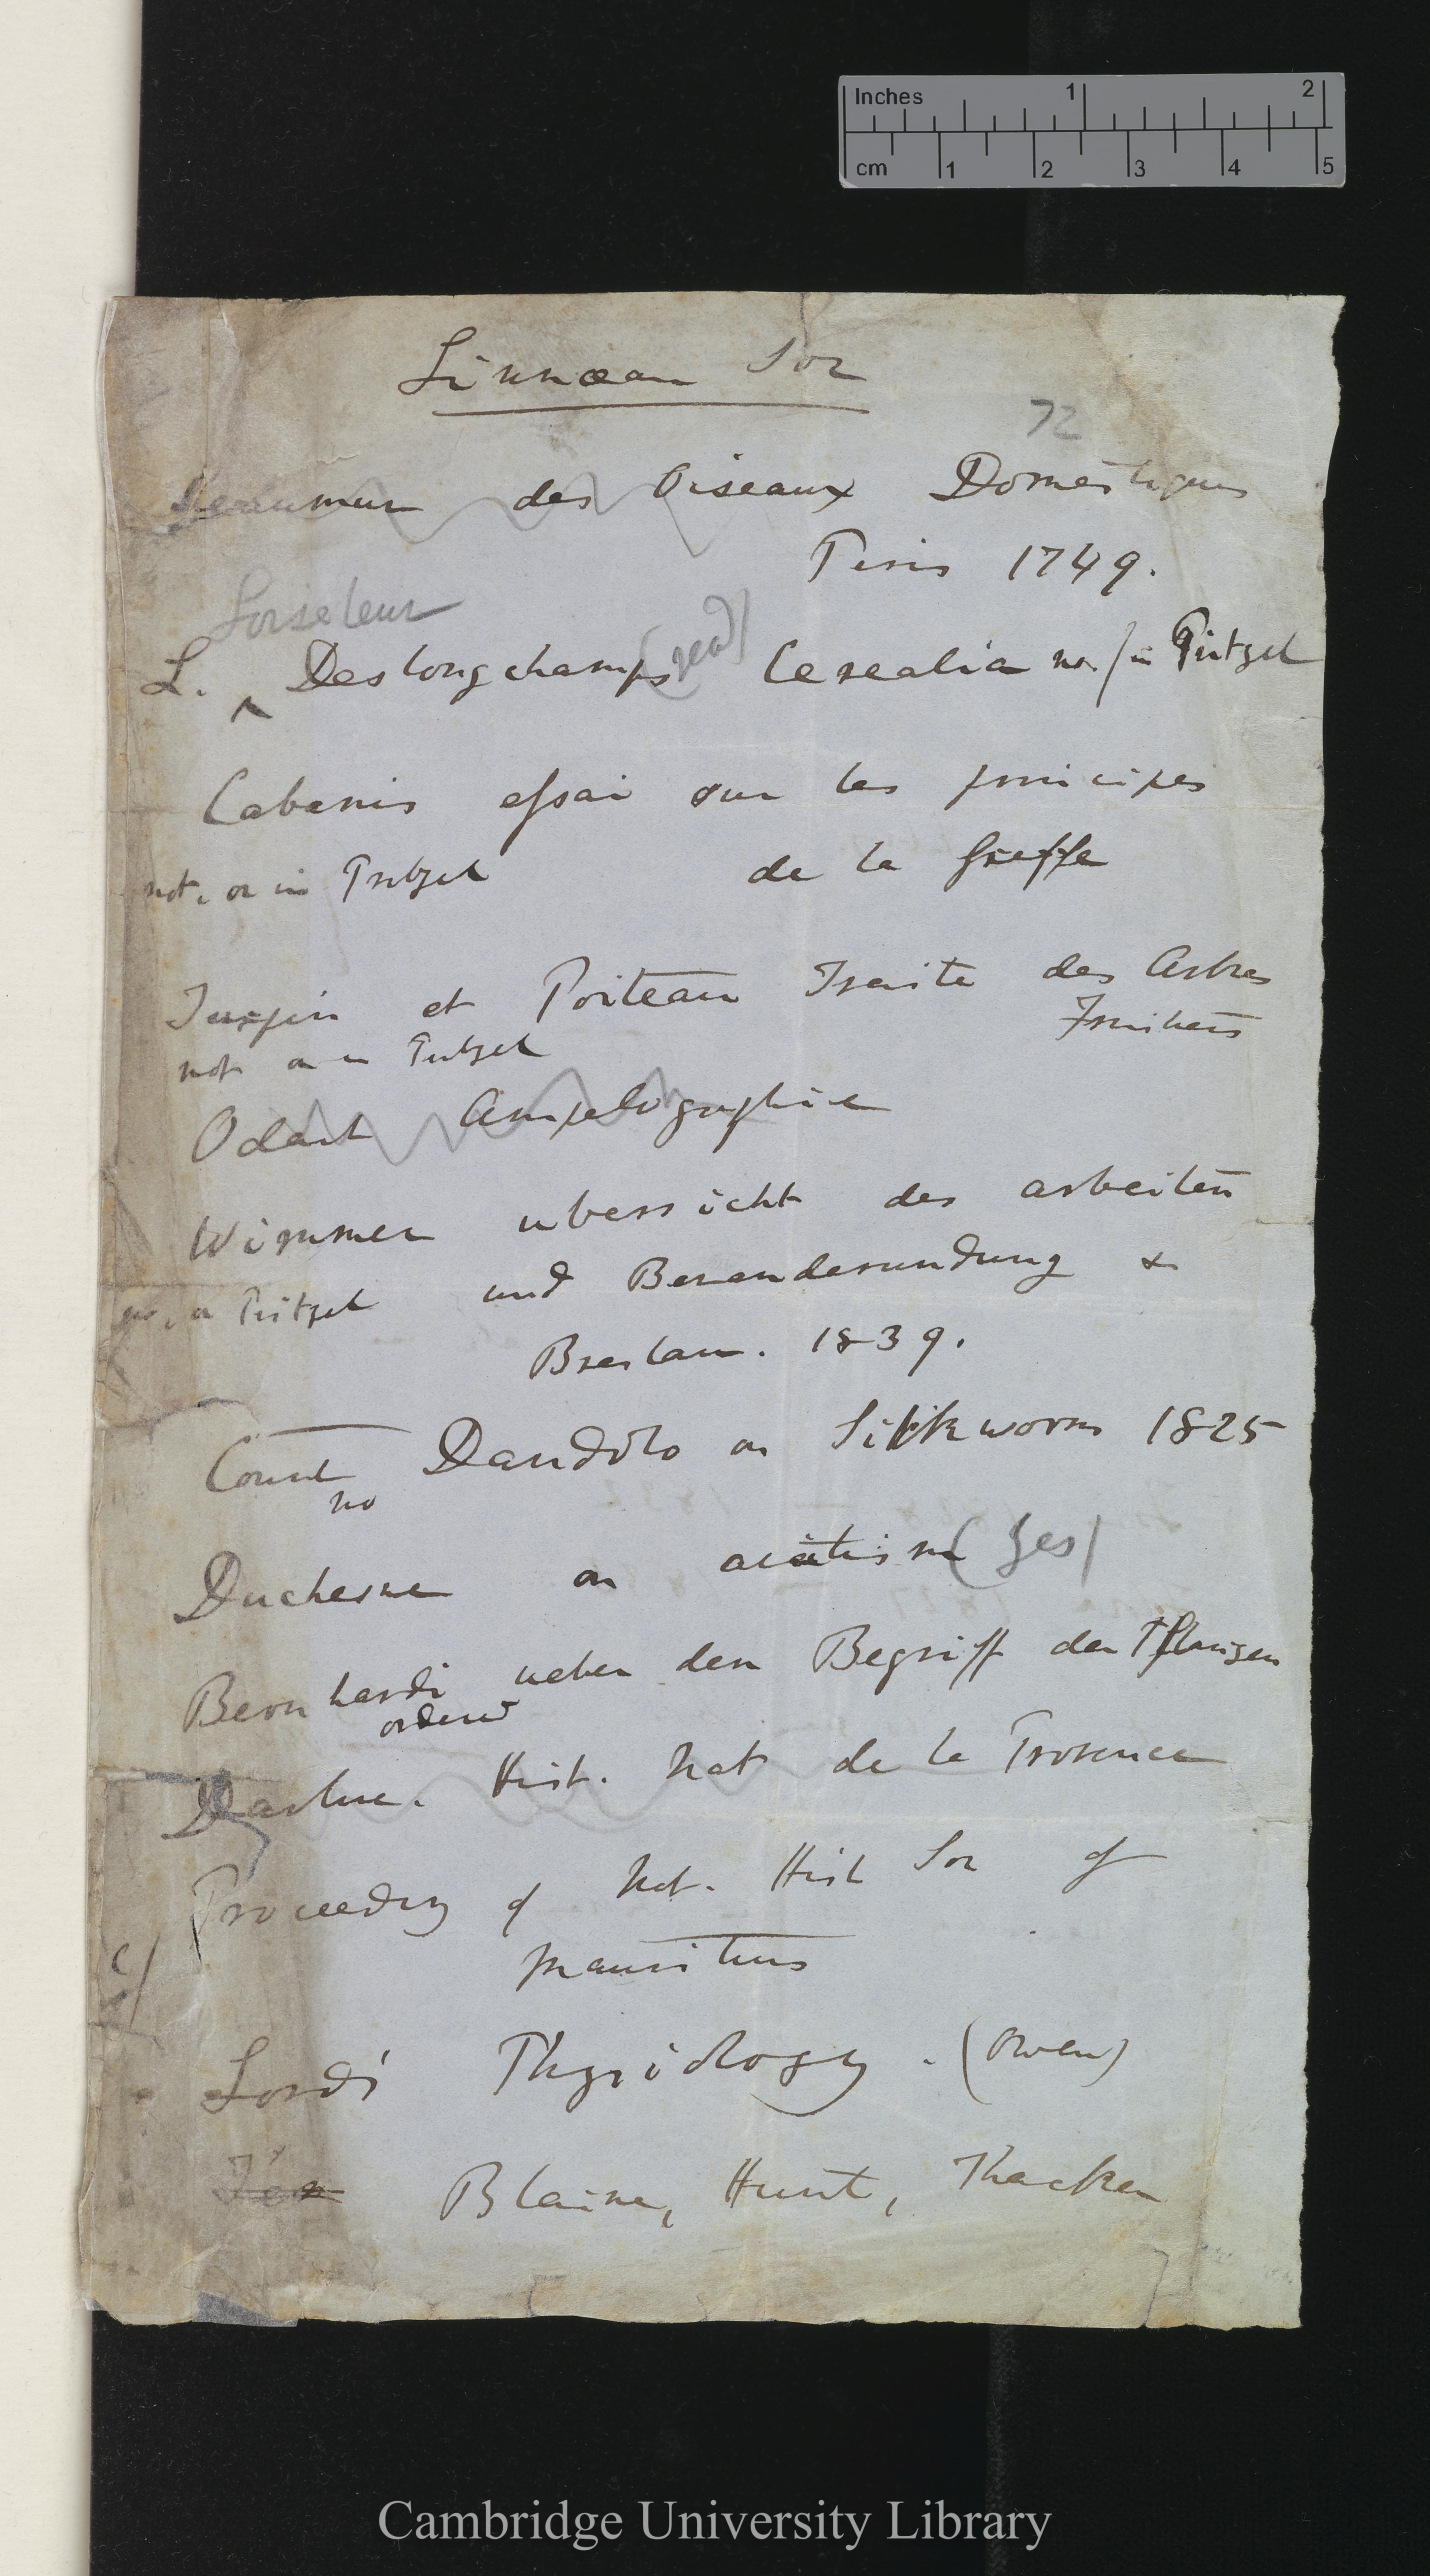 Inches 1 2
cm 1 2 3 4 5
Linnæan Soc
72
Reaumur des Oiseaux Domestiques
Paris 1749.
Loiseleur
L. ^ Deslongchamps (read) Cerealia no / in Pritzel
Cabanis essai sur les principes
de la Greffe
not. or in Pritzel
Turpin et Poiteau Traite des Arbres
Fruitiers
not or in Pritzel
Odart Ampelographie
Wimmer ubersicht des arbeiten
und Beranderundung &
no. in Pritzel
Breslau. 1839.
Count Dandolo on Silkworm 1825
no
Duchesne on (yes)
Bernhardi ueber den Begriff der Pflanzen
ordered
Darluc. Hist. Nat de la Provence
Proceeding of Nat. Hist Soc of
Mauritius
Lords Physiology. (Owen)
Blaine, Hunt, Thacker
Cambridge University Library